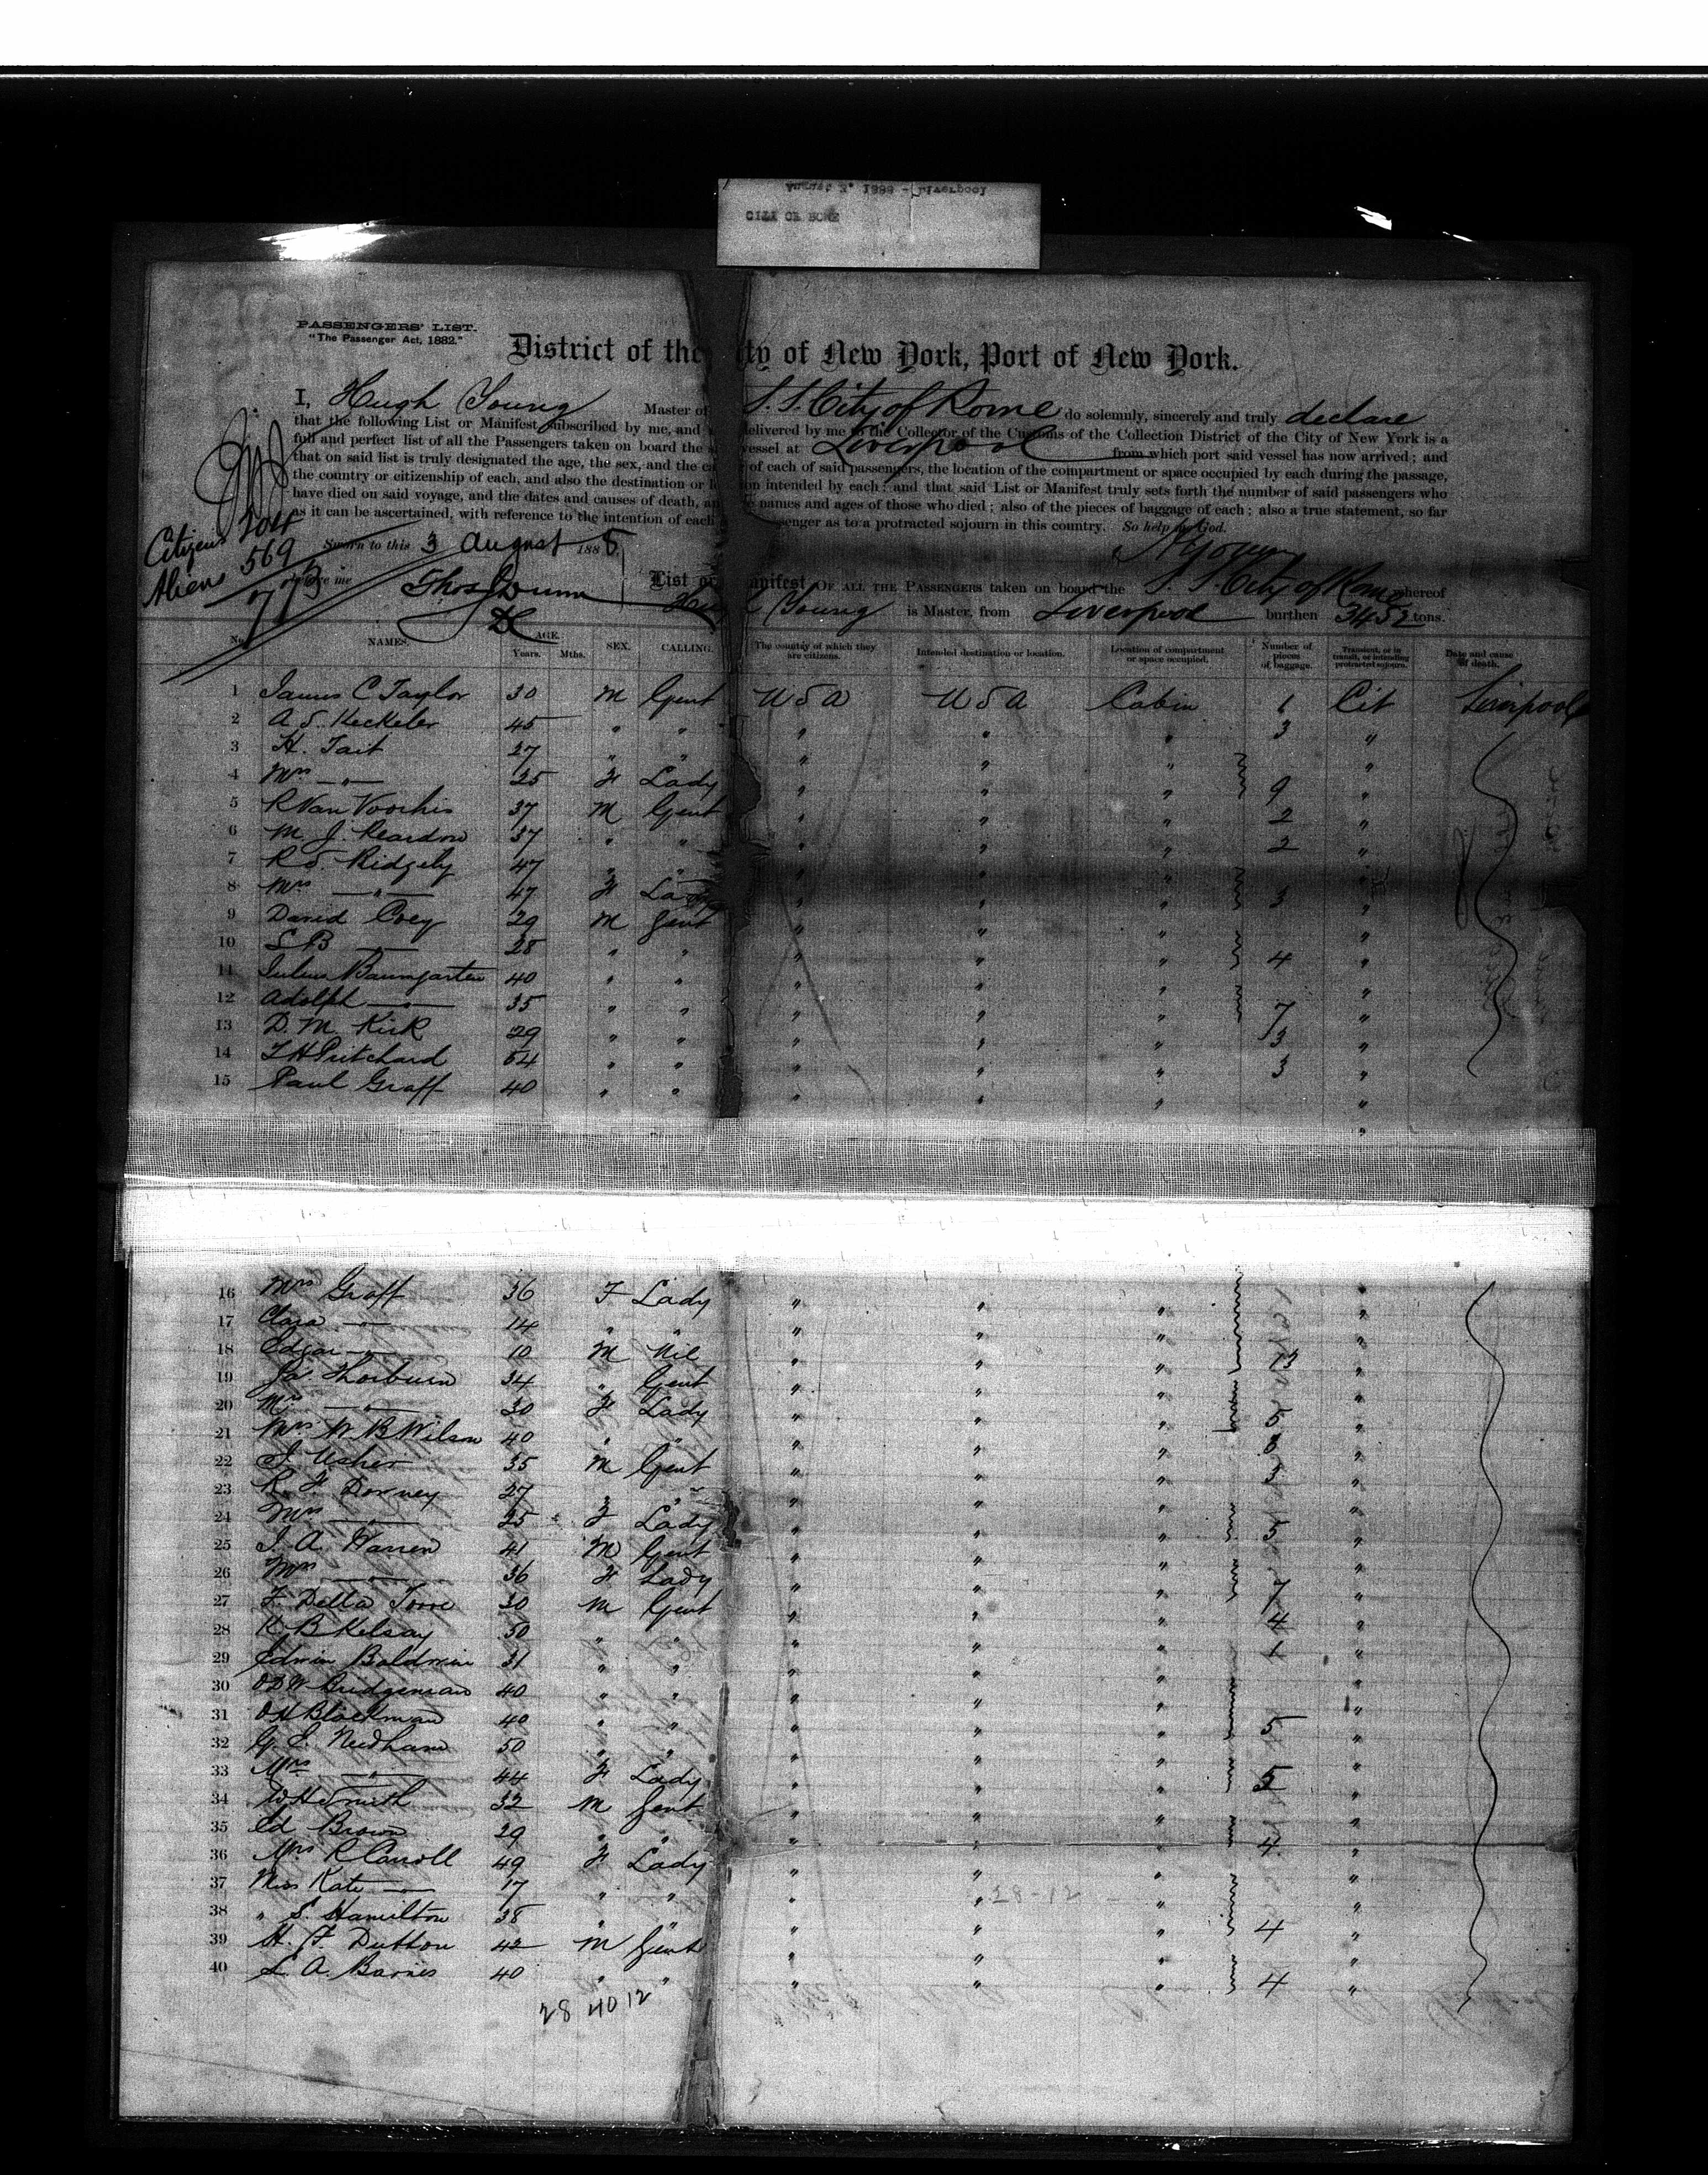 CITY OF ROME
PASSENGERS' LIST.
"The Passenger Act, 1882."
District of the City of New York, Port of New York.
I, Hugh Young Master of S.S. City of Rome do solemnly, sincerely and truly declare
that the following List or Manifest subscribed by me, and delivered by me to the Collector of the Customs of the Collection District of the City of New York is a
full and perfect list of all the Passengers taken on board the vessel at Liverpool from which port said vessel has now arrived; and
that on said list is truly designated the age, the sex, and the of each of said passengers, the location of the compartment or space occupied by each during the passage,
the country or citizenship of each, and also the destination or intended by each; and that said List or Manifest truly sets forth the number of said passengers who
have died on said voyage, and the dates and causes of death, names and ages of those who died; also of the pieces of baggage of each; also a true statement, so far
as it can be ascertained, with reference to the intention of each passenger as to a protracted sojourn in this country. So help me God.
Citizens 204
Aliens 569
773
Sworn to this 3 August 1888
H Young
Thos Dunn
List or Manifest OF ALL THE PASSENGERS taken on board the S.S. City of Rome whereof
Hugh Young is Master, from Liverpool burthen 3452 tons.
No. NAMES. AGE. Years. Mths. SEX. CALLING. The country of which they are citizens. Intended destination or location. Location of compartment or space occupied. Number of pieces of baggage. Transient, or in transit, or intending protracted sojourn. Date and cause of death.
1 James C Taylor 30 M Gent U S A U S A Cabin 1 Cit Liverpool
2 A. S. Keckeler 45 " " " " " 3 "
3 H. Tait 27 " " " " " "
4 Mrs —"— 25 F Lady " " " 9 "
5 R Van Voorhis 37 M Gent " " " 2 "
6 M. J. Reardon 37 " " " " " 2 "
7 R S Ridgely 47 " " " " " "
8 Mrs —"— 47 F Lady " " " 3 "
9 David Coey 29 M Gent " " " "
10 S B —"— 28 " " " " " 4 "
11 Julius Baumgarten 40 " " " " " "
12 Adolph —"— 35 " " " " " 7 "
13 D. M. Kirk 29 " " " " " 3 "
14 T H Pritchard 54 " " " " " 3 "
15 Paul Graff 40 " " " " " "
16 Mrs Graff 36 F Lady " " " "
17 Clara —"— 14 " " " " " "
18 Edgar —"— 10 M Nil " " " 13 "
19 Ja. Thorburn 34 " Gent " " " "
20 Mrs —"— 30 F Lady " " " 5 "
21 Mrs W. B Wilson 40 " " " " " 3 "
22 J. Usher 35 M Gent " " " 3 "
23 R. F. Dorney 27 " " " " " "
24 Mrs —"— 25 F Lady " " " 5 "
25 J. A. Warren 41 M Gent " " " "
26 Mrs —"— 36 F Lady " " " 7 "
27 F. Della Torre 30 M Gent " " " 4 "
28 K. B Kelsay 50 " " " " " 1 "
29 Edwin Baldwin 31 " " " " " "
30 O D W Bridgeman 40 " " " " " "
31 O H Blackman 40 " " " " " 5 "
32 G. E. Needham 50 " " " " " "
33 Mrs —"— 44 F Lady " " " 5 "
34 W H Smith 32 M Gent " " " "
35 Ed Brown 29 " " " " " 4 "
36 Mrs R Carroll 49 F Lady " " " "
37 Miss Kate —"— 17 " " " " " "
38 " S. Hamilton 38 " " " " " 4 "
39 H. F. Dutton 42 M Gent " " " "
40 L. A. Barnes 40 " " " " " 4 "
28 40 12
28-12